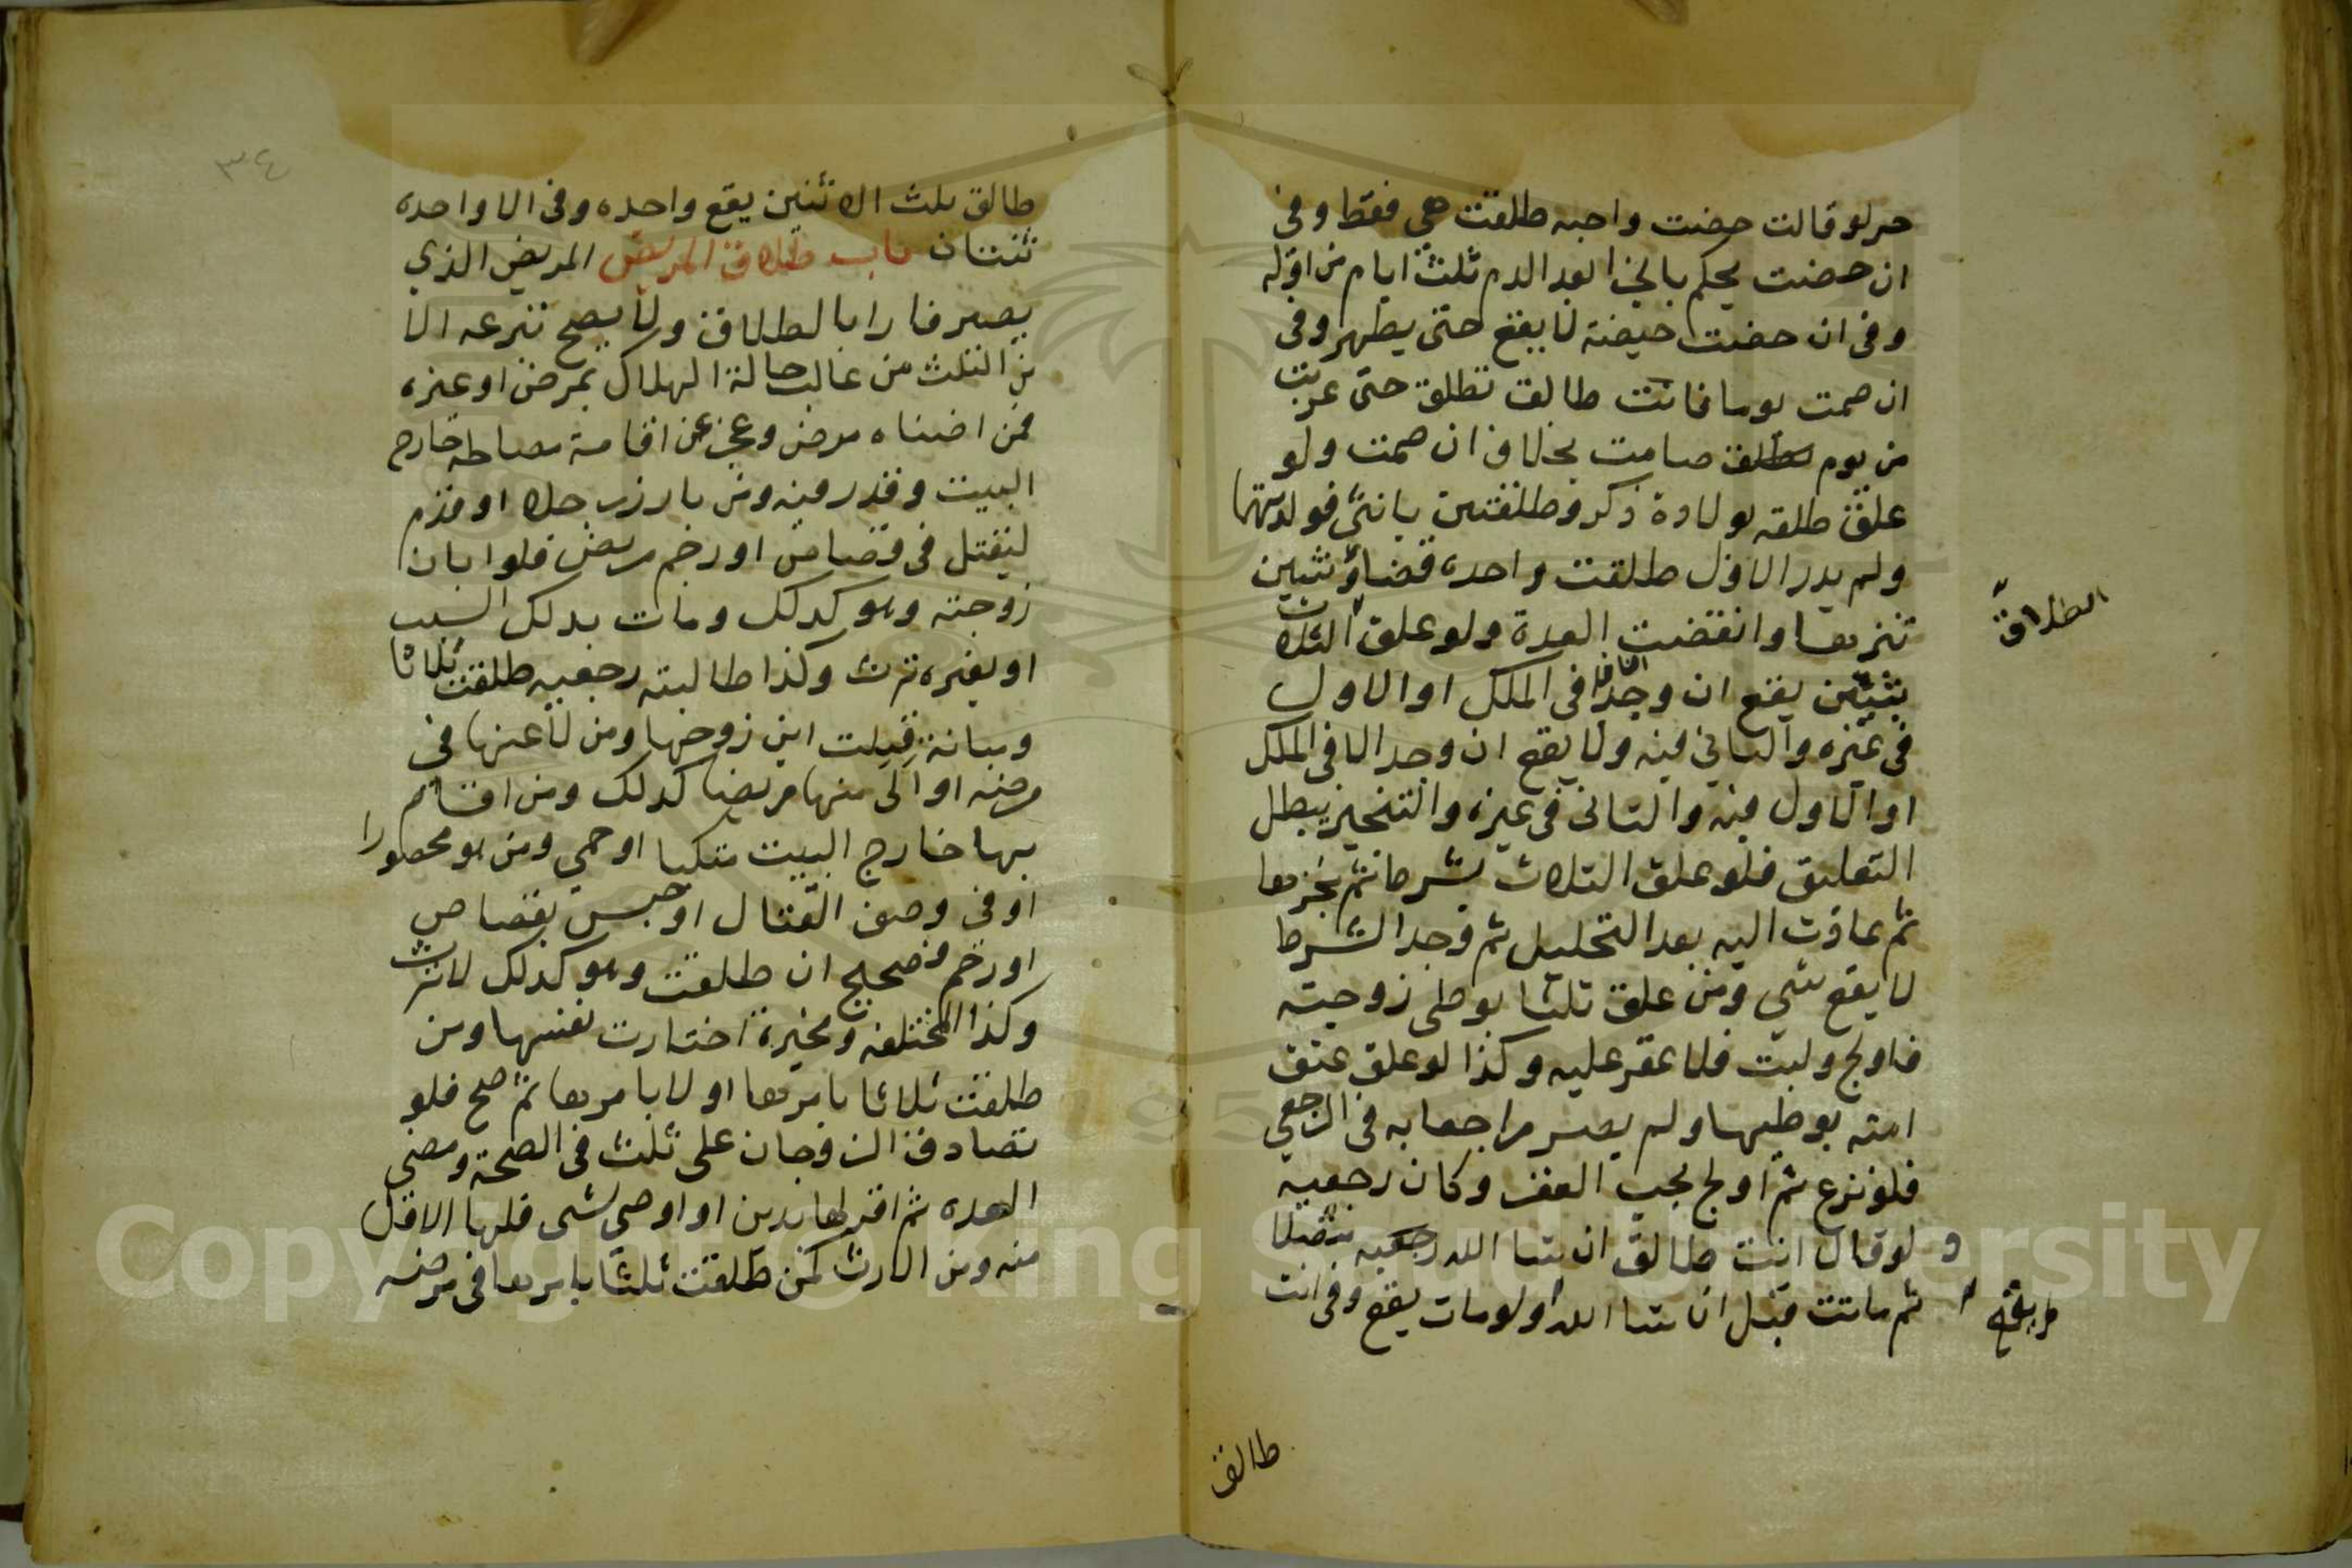 حر لو قالت حضت واحبه طلقت هي فقط وفي
ان حضت يحكم بالجزا بعد الدم ثلثة ايام من اوله
وفي ان حضت حيضة لا يقع حتى يطهر وفي
ان صمت يوما فانت طالق تطلق حتى غربت
من يوم صامت بخلاف ان صمت ولو
علق طلقه بولادة ذكر وطلقتين بانثى فولدتهما
ولم يدر الاول طلقت واحده قضاء وثنتين
تنزيها وانقضت العدة ولو علق الثلاث
بشيئين يقع ان وجد الثاني في الملك او الاول
في غيره والثاني فيه ولا يقع ان وجد الا في الملك
او الاول فيه والثاني في غيره والتنجيز يبطل
التعليق فلو علق الثلاث بشرط ثم نجزها
ثم عادت اليه بعد التحليل ثم وجد الشرط
لا يقع شي ومن علق ثلثا بوطى زوجته
فاولج ولبث فلا عقر عليه وكذا لو علق عتق
امته بوطيها ولم يصر مراجعا به في الرجعي
فلو نزع ثم اولج يجب العقر وكان رجعيه
و لو قال انت طالق ان شا الله متصلا
ثم ماتت قبل ان شا الله او لو مات يقع وفي انت
الطلاق
طالق
٣٤
طالق ثلث الا ثنتين يقع واحده وفي الا واحده
ثنتان باب طلاق المريض المريض الذي
يصير فارا بالطلاق ولا يصح تبرعه الا
من الثلث من غالب حالة الهلاك بمرض او غيره
فمن اضناه مرض وعجز عن اقامة مصالحه خارج
البيت وقدر فيه ومن بارز رجلا او قدم
ليقتل في قصاص او رجم مريض فلو ابان
زوجته وهو كذلك ومات بذلك السبب
او بغيره ترث وكذا طالبته رجعيه طلقت ثلاثا
ومبانة قبلت ابن زوجها ومن لاعنها في
مرضه او الى منها مريضا كذلك ومن اقام
بها خارج البيت متكيا او حمي ومن هو محصورا
او في وصف القتال او حبس بقصاص
او رجم وصحيح ان طلقت وهو كذلك لا ترث
وكذا المختلعه ومخيرة اختارت نفسها ومن
طلقت ثلاثا بامرها او لا بامرها ثم صح فلو
تصادق الزوجان على ثلث في الصحة ومضي
العده ثم اقر لها بدين او اوصى بشي فلها الاقل
منه ومن الارث كمن طلقت ثلثا بامرها في مرضه
Copyright © King Saud University